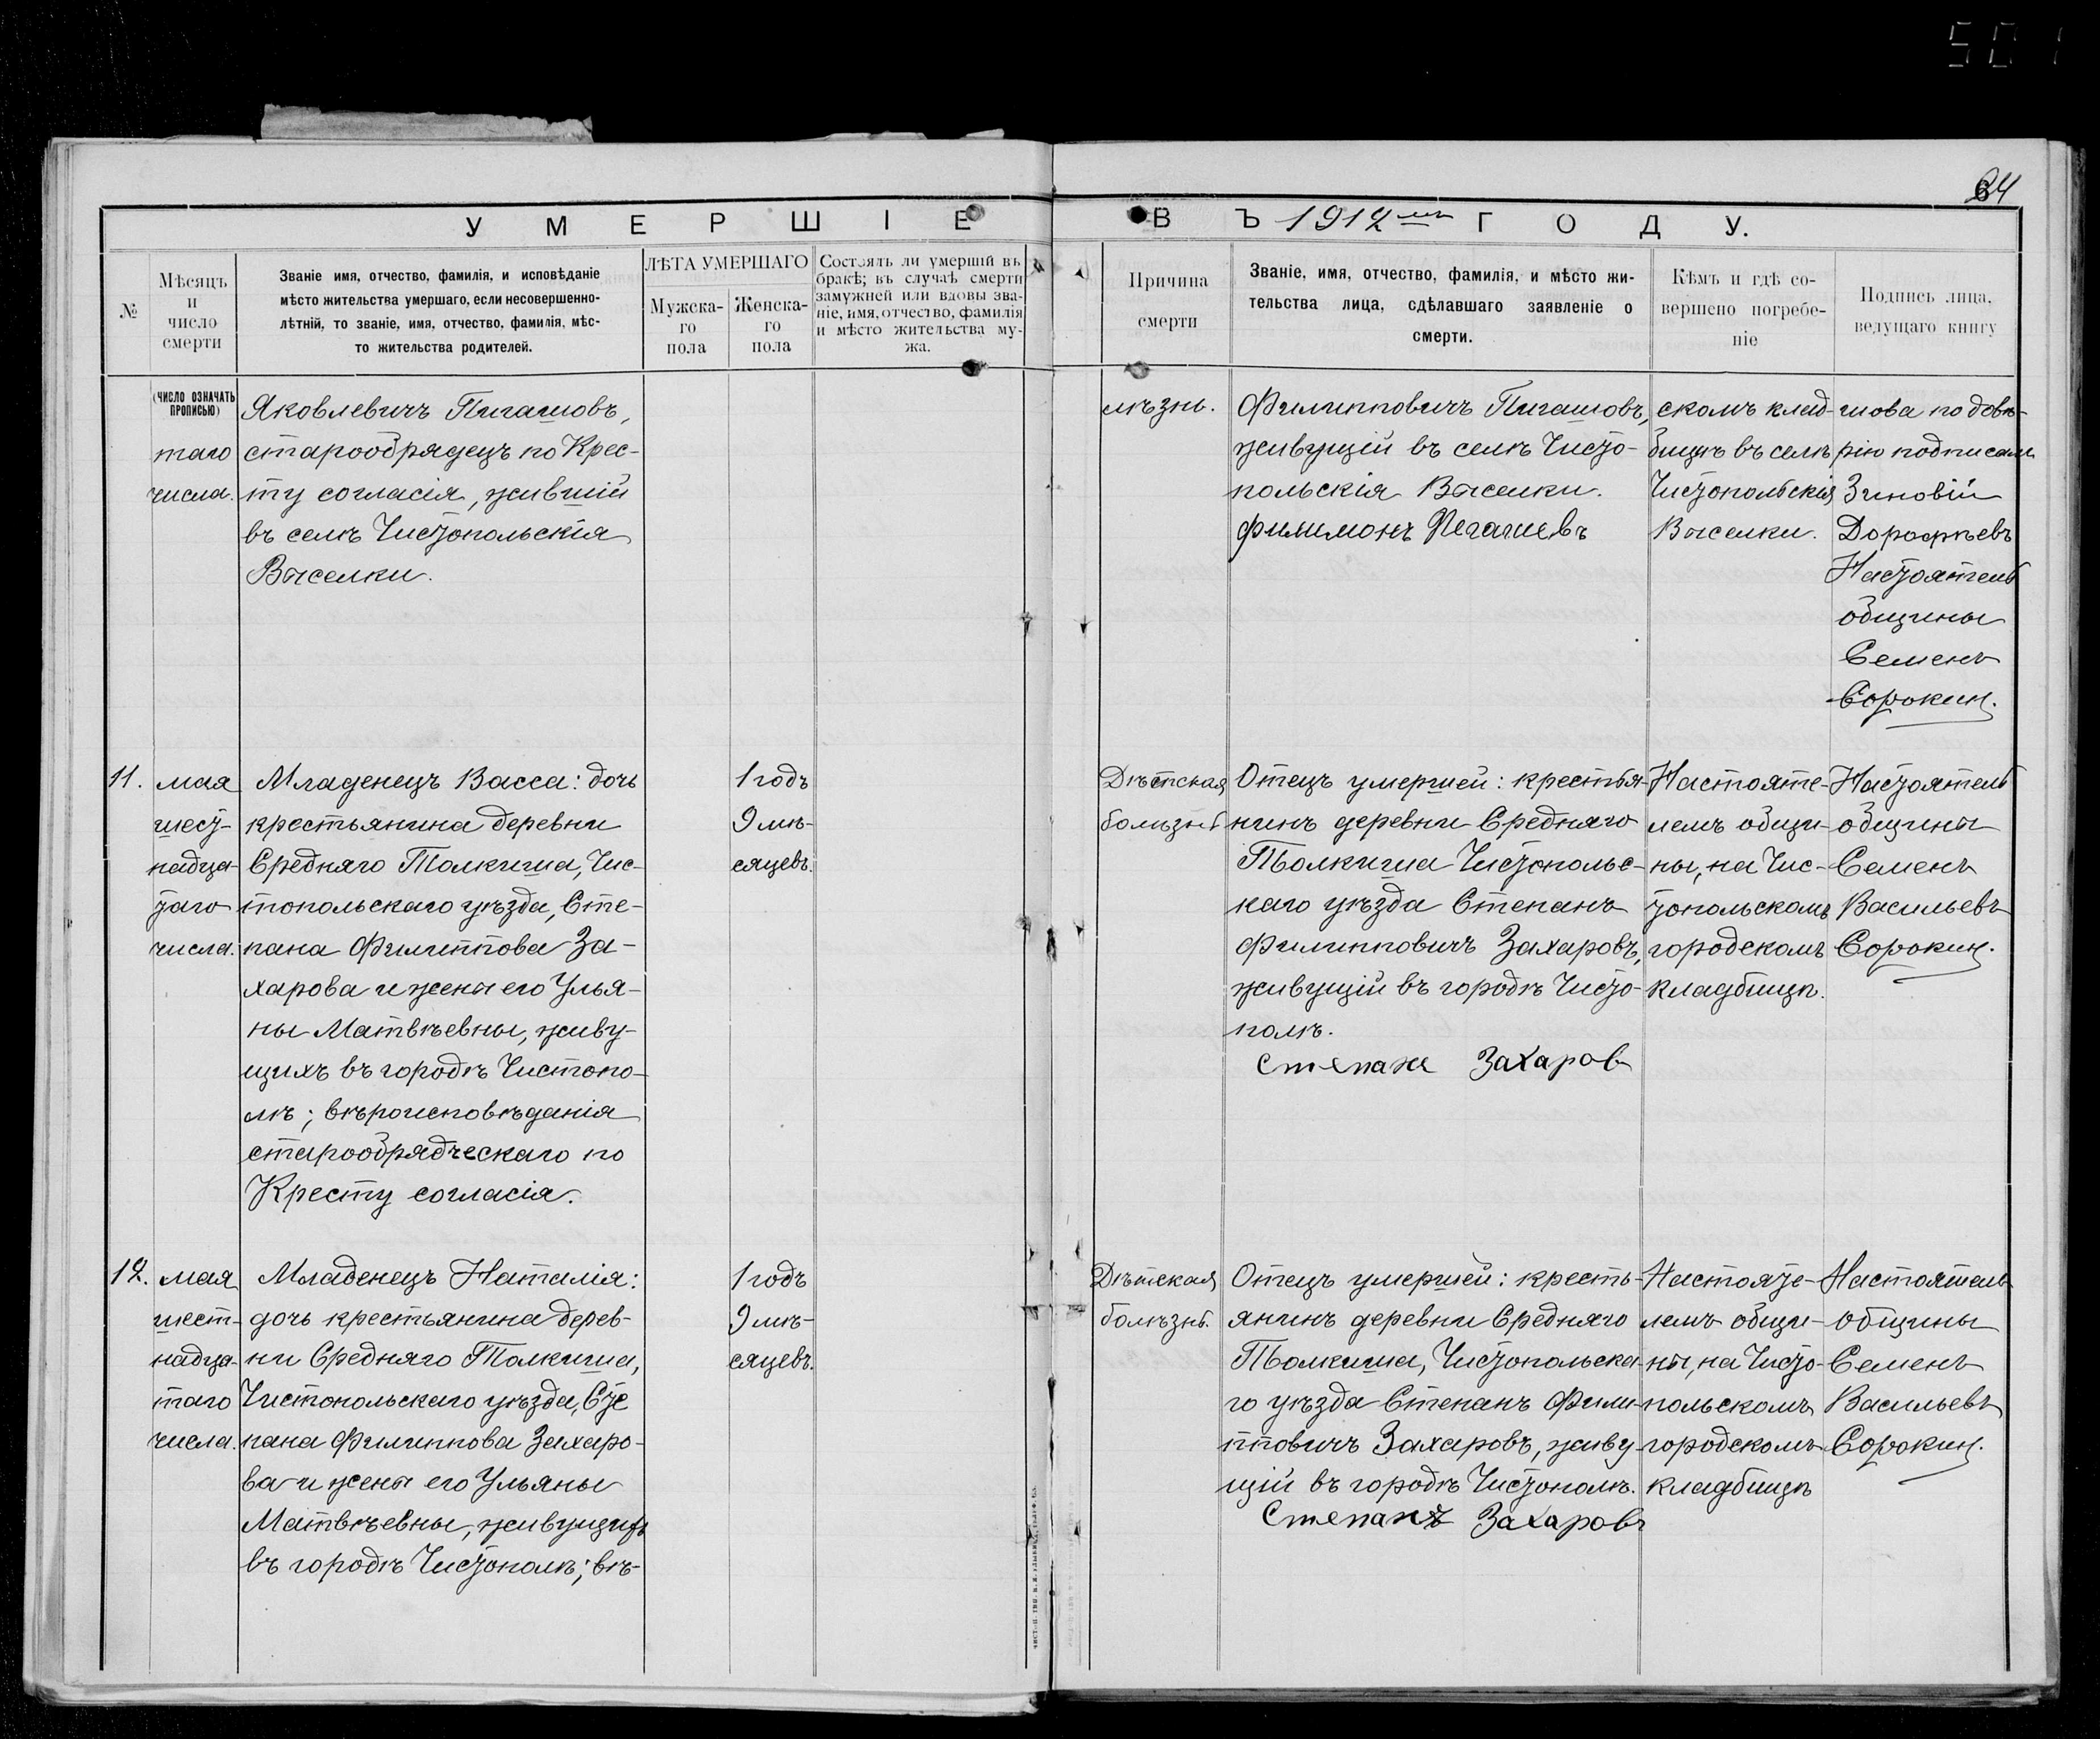 501
64
УМЕРШІЕ
ВЪ 1912 мъ ГОДУ.
№
Мѣсяцъ
и
число
смерти
Званіе имя, отчество, фамилія, и исповѣданіе
мѣсто жительства умершаго, если несовершенно-
лѣтній, то званіе, имя, отчество, фамилія, мѣс-
то жительства родителей.
ЛѢТА УМЕРШАГО
Мужска-
го
пола
Женска-
го
пола
Состоялъ ли умершій въ
бракѣ; въ случаѣ смерти
замужней или вдовы зва-
ніе, имя, отчество, фамилія
и мѣсто жительства му-
жа.
Причина
смерти
Званіе, имя, отчество, фамилія, и мѣсто жи-
тельства лица, сдѣлавшаго заявленіе о
смерти.
Кѣмъ и гдѣ со-
вершено погребе-
ніе
Подпись лица,
ведущаго книгу
(ЧИСЛО ОЗНАЧАТЬ
ПРОПИСЬЮ)
таго
числа.
Яковлевичъ Пигашовъ,
старообрядецъ по Крес-
ту согласія, жившій
въ селѣ Чистопольскія
Выселки.
лѣзнь.
Филипповичъ Пигашовъ,
живущій въ селѣ Чисто-
польскія Выселки.
Филимонъ Пегашевъ
скомъ клад-
бищѣ въ селѣ
Чистопольскія
Выселки.
шова по довѣ-
рію подписалъ
Зиновій
Дорофѣевъ
Настоятель
общины
Семенъ
Сорокин.
11.
мая
шест-
надца-
таго
числа.
Младенецъ Васса: дочь
крестьянина деревни
Средняго Толкиша, Чис-
топольскаго уѣзда, Сте-
пана Филиппова За-
харова и жены его Улья-
ны Матвѣевны, живу-
щихъ въ городѣ Чистопо-
лѣ; вѣроисповѣданія
старообрядческаго по
Кресту согласія.
1 годъ
9 мѣ-
сяцевъ.
Дѣтская
болѣзнь
Отецъ умершей: крестья-
нинъ деревни Средняго
Толкиша Чистопольс-
каго уѣзда Степанъ
Филипповичъ Захаровъ,
живущій въ городѣ Чисто-
полѣ.
Степане Захаров
Настояте-
лемъ общи-
ны, на Чис-
топольскомъ
городскомъ
кладбищѣ.
Настоятель
общины
Семенъ
Васильевъ
Сорокин.
12.
мая
шест-
надца-
таго
числа.
Младенецъ Наталія:
дочь крестьянина дерев-
ни Средняго Толкиша,
Чистопольскаго уѣзда, Сте
пана Филиппова Захаро-
ва и жены его Ульяны
Матвѣевны, живущихъ
въ городѣ Чистополѣ; вѣ-
1 годъ
9 мѣ-
сяцевъ.
Дѣтская
болѣзнь.
Отецъ умершей: кресть-
янинъ деревни Средняго
Толкиша, Чистопольска-
го уѣзда Степанъ Фили-
пповичъ Захаровъ, живу-
щій въ городѣ Чистополѣ.
Степанъ Захаровъ
Настояте-
лемъ общи-
ны, на Чисто-
польскомъ
городскомъ
кладбищѣ
Настоятель
общины
Семенъ
Васильевъ
Сорокин.